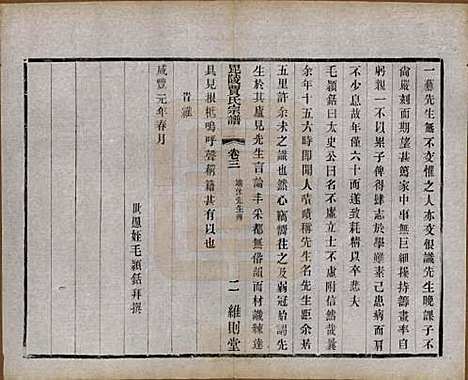 一藝先生無不安惟之人亦交恨識先生晚課子不
尚嚴刻而期望甚篤家中事無巨細擾持籌畫率自
躬親一不以分子俾得肆志於學舉業己患病而
不少息故年僅六十而遂致積勞以卒悲夫
毛穎銛曰太史公曰名不虛立士不虛附信哉曩
余年十五六時即聞人嘖嘖稱先生名先生距余居
五里許余未之識也然心竊嚮往之及弱冠始謁先
生於其廬見先生言論丰采都無俗韻而材識練達
具見根柢嗚呼聲稱籍甚有以哉
毘陵賈氏宗譜
卷三
二
維則堂
咸豐元年春月
世愚姪毛穎銛拜撰